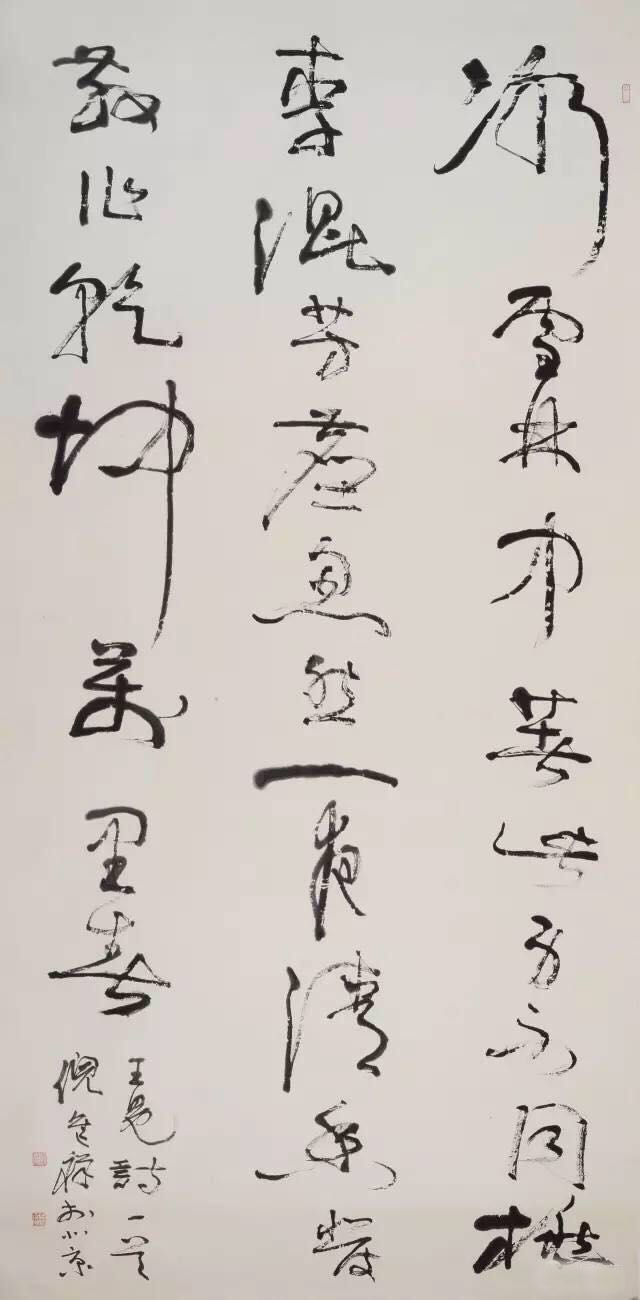 冰雪林中著此身不同桃
李混芳塵忽然一夜清香發
散作乾坤萬里春
王冕詩一首
倪祥於北京